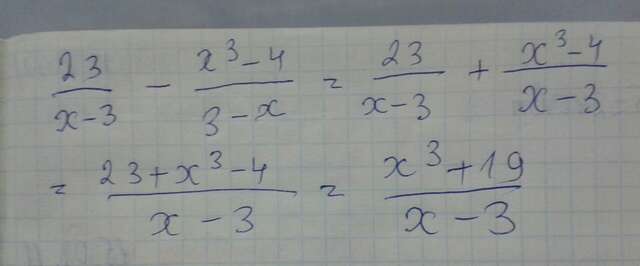 23/(x-3) - (x³-4)/(3-x) = 23/(x-3) + (x³-4)/(x-3)
= (23+x³-4)/(x-3) = (x³+19)/(x-3)